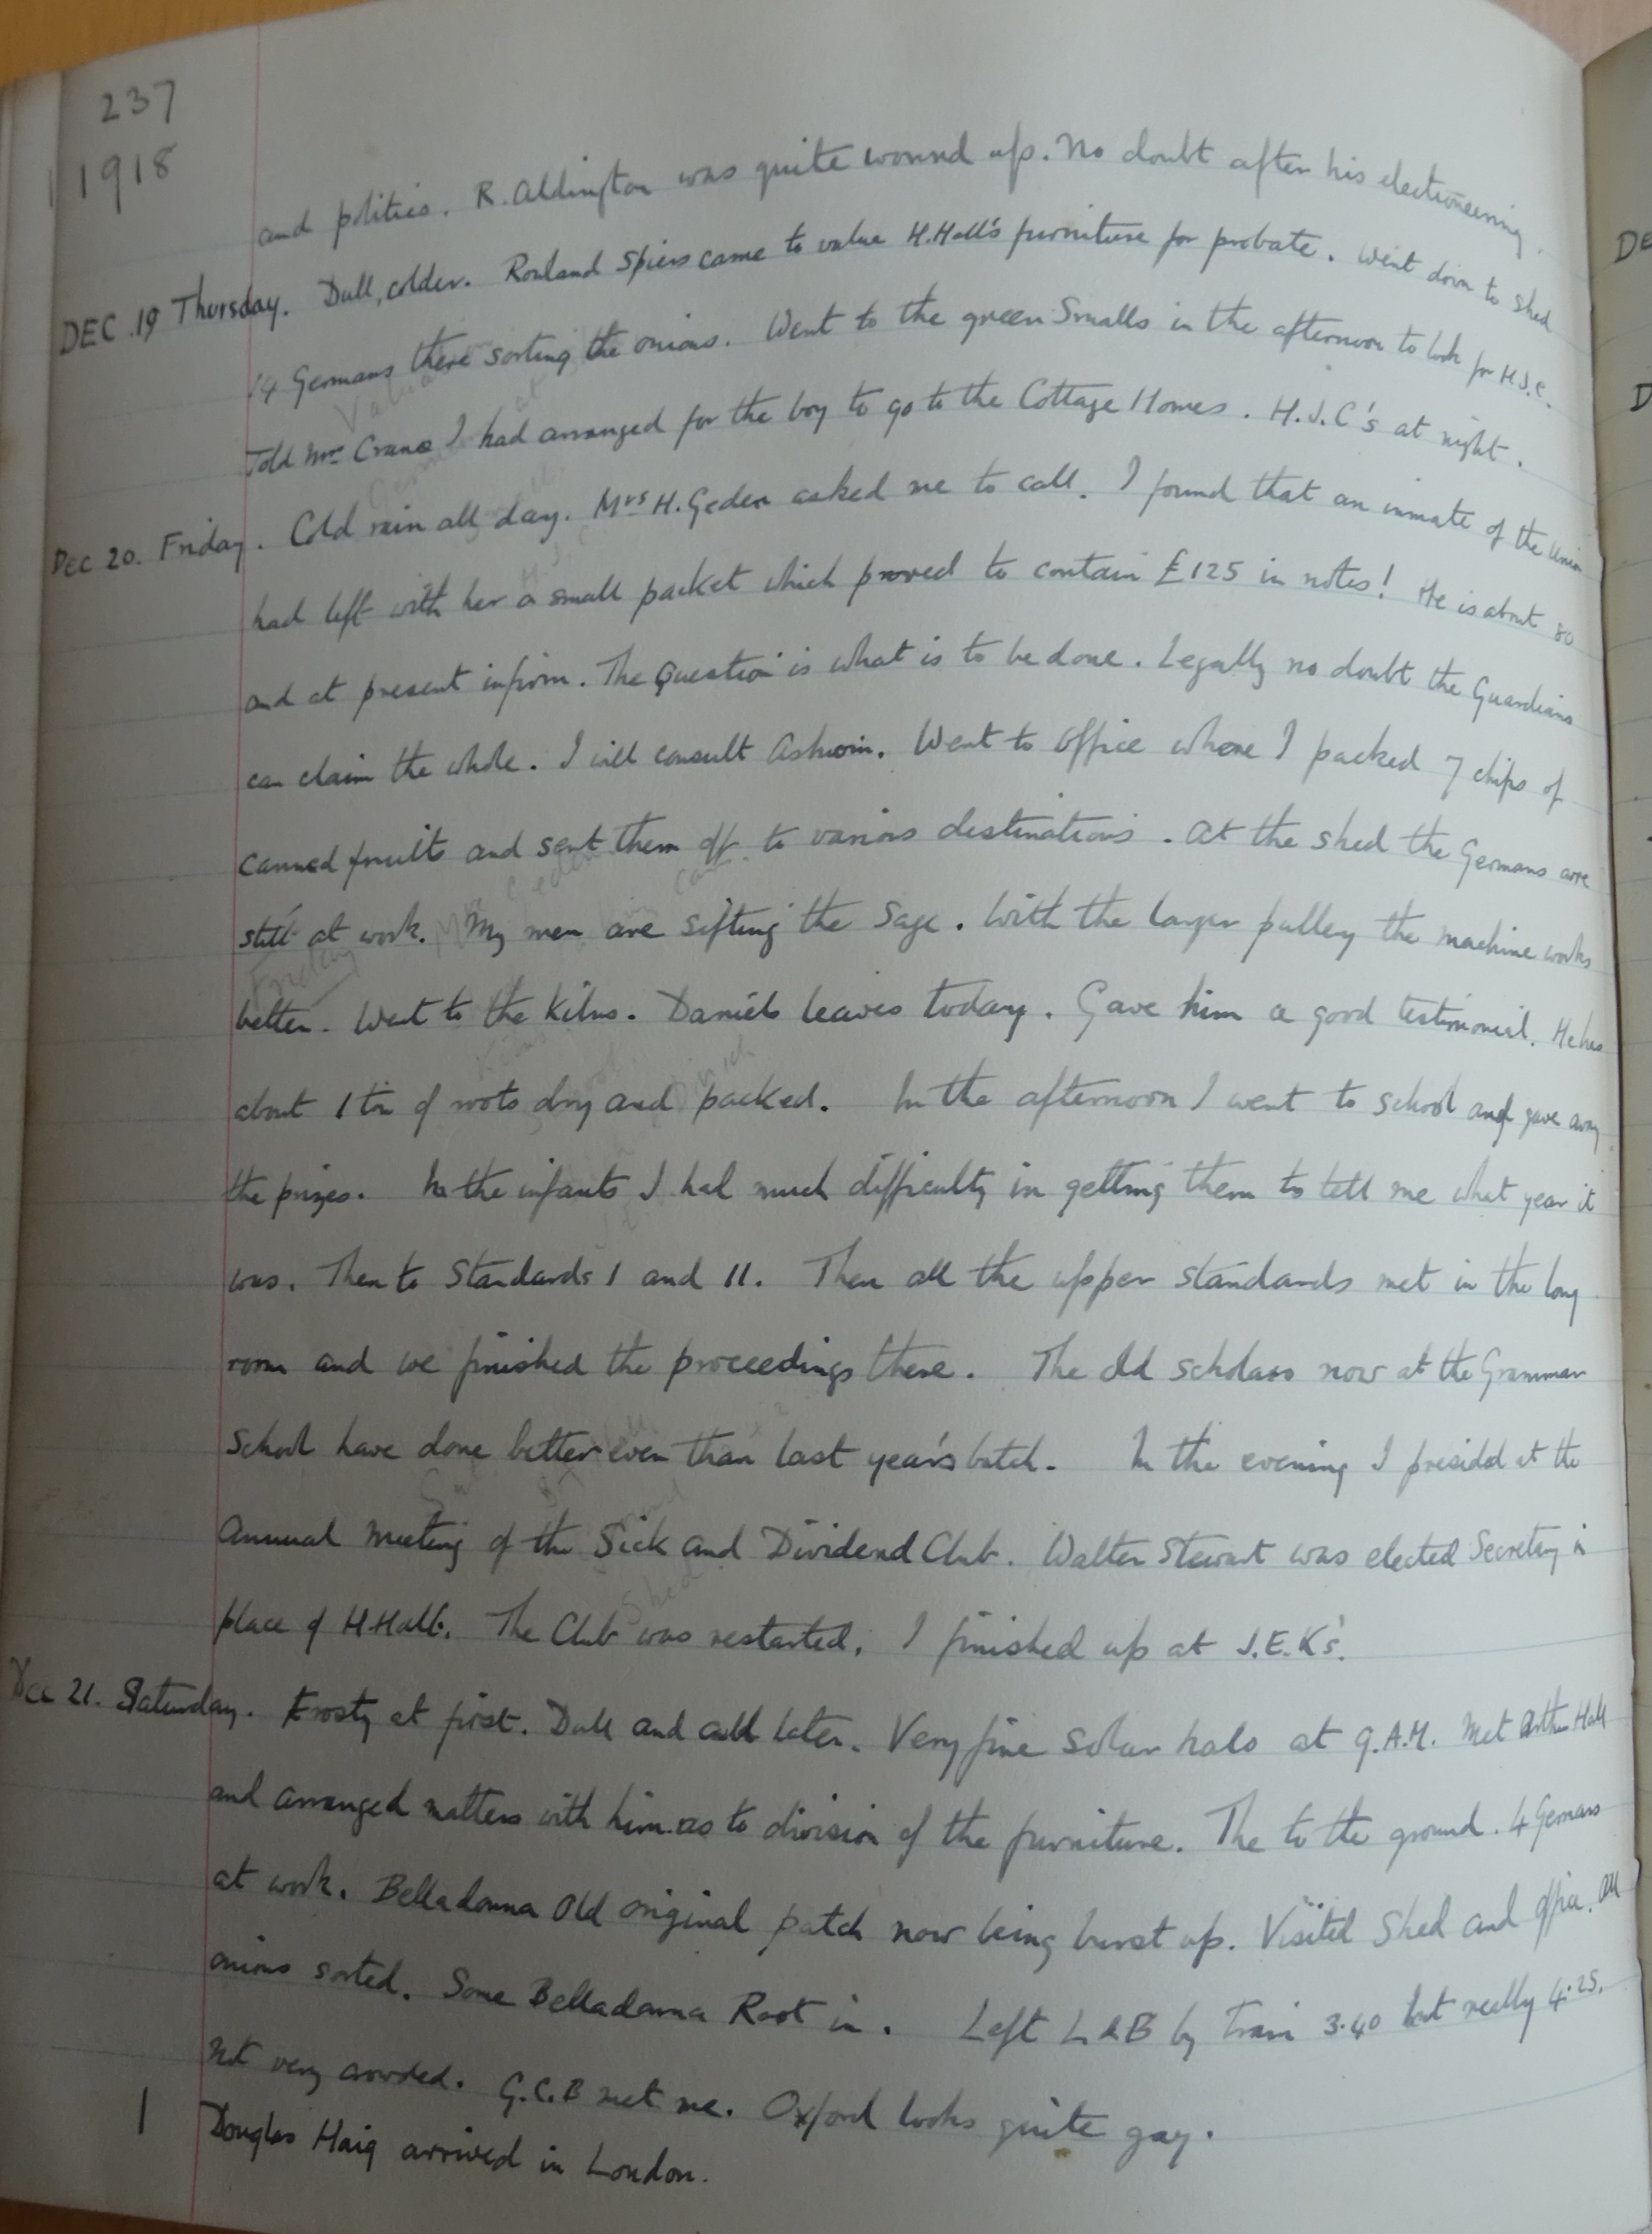 237
1918
and politics. R. Aldington was quite wound up. No doubt after his electioneering.
DEC. 19 Thursday. Dull, colder. Rouland Spiers came to value H. Hall's furniture for probate. Went down to shed
14 Germans there sorting the onions. Went to the green Smalls in the afternoon to look for H.J.C.
Told Mrs Crane I had arranged for the boy to go to the Cottage Homes. H.J.C's at night.
Dec 20. Friday. Cold rain all day. Mrs H. Geden asked me to call. I found that an inmate of the Union
had left with her a small packet which proved to contain £125 in notes! He is about 80
and at present infirm. The Question is what is to be done. Legally no doubt the Guardians
can claim the whole. I will consult Ashwin. Went to office where I packed 7 chips of
canned fruits and sent them off to various destinations. At the shed the Germans are
still at work. My men are sifting the Sage. With the larger pulley the machine works
better. Went to the Kilns. Daniels leaves today. Gave him a good testimonial. He has
about 1 ton of roots dry and packed. In the afternoon I went to school and gave away
the prizes. In the infants I had much difficulty in getting them to tell me what year it
was. Then to Standards I and II. Then all the upper standards met in the long
room and we finished the proceedings there. The old scholars now at the Grammar
School have done better even than last year's batch. In the evening I presided at the
Annual Meeting of the Sick and Dividend Club. Walter Stewart was elected Secretary in
place of H Hall. The Club was restarted. I finished up at J.E.K's.
Dec 21. Saturday. Frosty at first. Dull and cold later. Very fine solar halo at 9.A.M. Met Arthur Hall
and arranged matters with him as to division of the furniture. The to the ground. 4 Germans
at work. Belladonna Old original patch now being burst up. Visited Shed and office. All
onions sorted. Some Belladonna Root in. Left L & B by train 3.40 but really 4.25.
Not very crowded. G.C.B met me. Oxford looks quite gay.
Douglas Haig arrived in London.